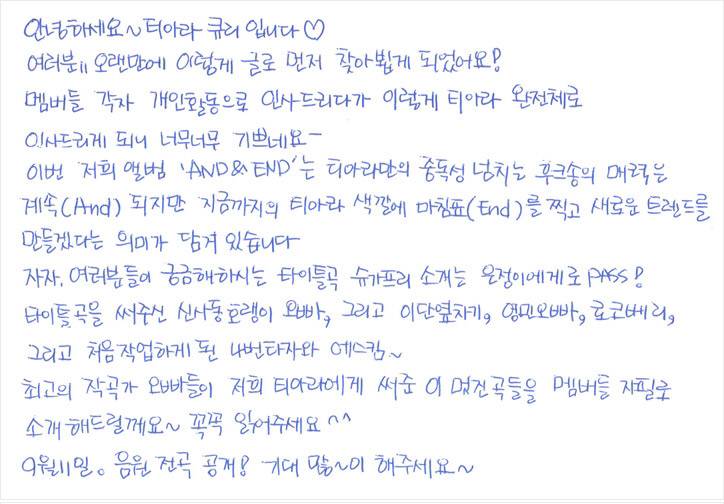 안녕하세요~ 티아라 큐리 입니다♡
여러분!! 오랜만에 이렇게 글로 먼저 찾아뵙게 되었어요!
멤버들 각자 개인활동으로 인사드리다가 이렇게 티아라 완전체로
인사드리게 되니 너무너무 기쁘네요-
이번 저희 앨범 'AND & END'는 티아라만의 중독성 넘치는 후크송의 매력은
계속(And) 되지만 지금까지의 티아라 색깔에 마침표(End)를 찍고 새로운 트렌드를
만들겠다는 의미가 담겨 있습니다
자자, 여러분들이 궁금해하시는 타이틀곡 슈가프리 소개는 은정이에게로 PASS!
타이틀곡을 써주신 신사동호랭이 오빠, 그리고 이단옆차기, 영민오빠, 로코베리,
그리고 처음작업하게 된 4번타자와 에스킴~
최고의 작곡가 오빠들이 저희 티아라에게 써준 이 멋진곡들을 멤버들 자필로
소개해드릴께요~ 꼭꼭 읽어주세요^^
9월11일. 음원 전곡 공개! 기대 많~이 해주세요~